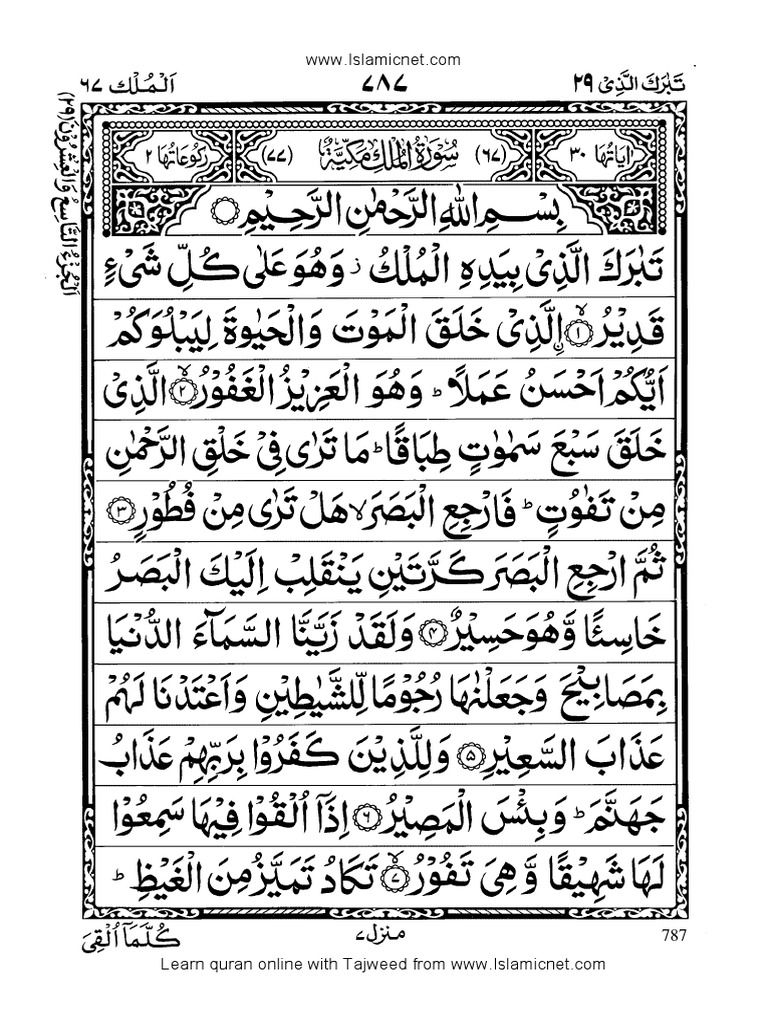 www.Islamicnet.com
تَبٰرَكَ الَّذِیْ ۲۹
۷۸۷
اَلْمُلْك ۶۷
اَلْجُزْءُ التَّاسِعُ وَالْعِشْرُوْنَ (۲۹)
اٰيَاتُهَا ۳۰
(۶۷) سُوْرَةُ الْمُلْكِ مَكِّيَّةٌ (۷۷)
رُكُوْعَاتُهَا ۲
بِسْمِ اللهِ الرَّحْمٰنِ الرَّحِيْمِ
تَبٰرَكَ الَّذِیْ بِيَدِهِ الْمُلْكُ ز وَهُوَ عَلٰی كُلِّ شَیْءٍ
قَدِيْرُ ۙ﴿۱﴾ نِ الَّذِیْ خَلَقَ الْمَوْتَ وَالْحَيٰوةَ لِيَبْلُوَكُمْ
اَيُّكُمْ اَحْسَنُ عَمَلًا ؕ وَهُوَ الْعَزِيْزُ الْغَفُوْرُ ۙ﴿۲﴾ الَّذِیْ
خَلَقَ سَبْعَ سَمٰوٰتٍ طِبَاقًا ؕ مَا تَرٰی فِیْ خَلْقِ الرَّحْمٰنِ
مِنْ تَفٰوُتٍ ؕ فَارْجِعِ الْبَصَرَ ۙ هَلْ تَرٰی مِنْ فُطُوْرٍ ﴿۳﴾
ثُمَّ ارْجِعِ الْبَصَرَ كَرَّتَيْنِ يَنْقَلِبْ اِلَيْكَ الْبَصَرُ
خَاسِئًا وَّهُوَ حَسِيْرٌ ﴿۴﴾ وَلَقَدْ زَيَّنَّا السَّمَآءَ الدُّنْيَا
بِمَصَابِيْحَ وَجَعَلْنٰهَا رُجُوْمًا لِّلشَّيٰطِيْنِ وَاَعْتَدْنَا لَهُمْ
عَذَابَ السَّعِيْرِ ﴿۵﴾ وَلِلَّذِيْنَ كَفَرُوْا بِرَبِّهِمْ عَذَابُ
جَهَنَّمَ ؕ وَبِئْسَ الْمَصِيْرُ ﴿۶﴾ اِذَآ اُلْقُوْا فِيْهَا سَمِعُوْا
لَهَا شَهِيْقًا وَّهِیَ تَفُوْرُ ۙ﴿۷﴾ تَكَادُ تَمَيَّزُ مِنَ الْغَيْظِ ؕ
787
منزل ۷
كُلَّمَآ اُلْقِیَ
Learn quran online with Tajweed from www.Islamicnet.com